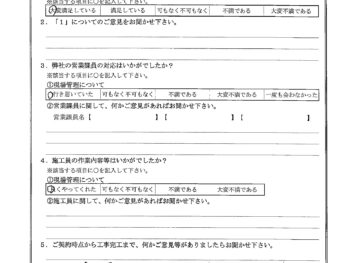 ※該当する項目に○を記入して下さい。
大変満足している 満足している 可もなく不可もなく 不満である 大変不満である
2．「１」についてのご意見をお聞かせ下さい。
3．弊社の営業課員の対応はいかがでしたか？
※該当する項目に○を記入して下さい。
①現場管理について
行き届いていた 可もなく不可もなく 不満である 大変不満である 一度も会わなかった
②営業課員に関して、何かご意見があればお聞かせ下さい。
営業課員名【 】 【 】
4．施工員の作業内容等はいかがでしたか？
※該当する項目に○を記入して下さい。
①現場管理について
良くやってくれた 可もなく不可もなく 不満である 大変不満である
②施工員に関して、何かご意見があればお聞かせ下さい。
5．ご契約時点から工事完工まで、何かご意見等がありましたらお聞かせ下さい。